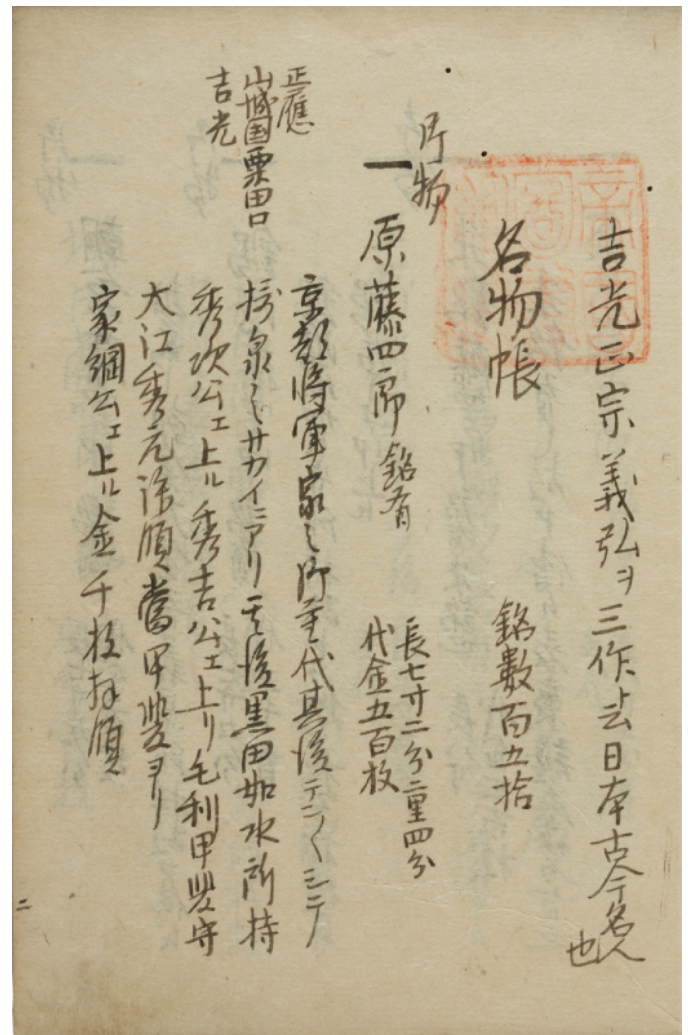 吉光正宗義弘ヲ三作ト云日本古今名人也
名物帳 銘數百五拾
御物
一 原藤四郎 銘有 長七寸二分二重四分
代金五百枚
正應
山城国粟田口
吉光
京都将軍家之御重代其後テンヽシニテ
拵泉之サカイニアリ其後黒田如水所持
秀次公エ上ル秀吉公エ上リ毛利甲斐守
大江秀元拝領當甲斐ヨリ
家綱公エ上ル金千枚拝領
二